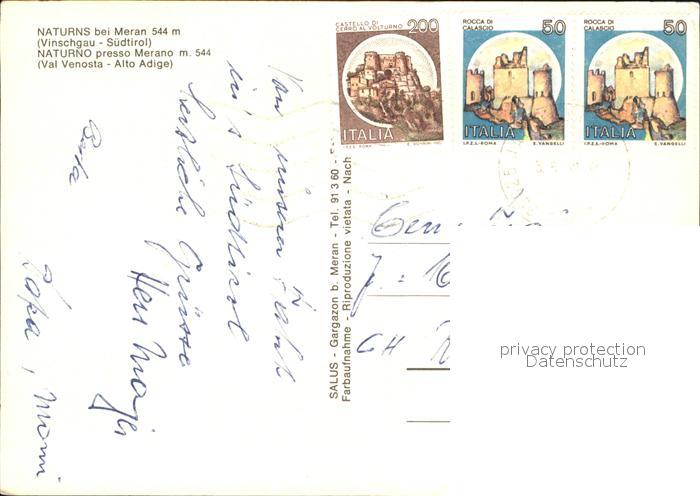 NATURNS bei Meran 544 m
(Vinschgau - Südtirol)
NATURNO presso Merano m. 544
(Val Venosta - Alto Adige)
CASTELLO DI
CERRO AL VOLTURNO
200
ITALIA
I.P.Z.S. ROMA
ROCCA DI
CALASCIO
50
ITALIA
I.P.Z.S.-ROMA E. VANGELLI
ROCCA DI
CALASCIO
50
ITALIA
I.P.Z.S.-ROMA E. VANGELLI
Von unserer Fahrt
ins Südtirol
herzliche Grüsse
Papa, Mami
SALUS - Gargazon b. Meran - Tel. 91 3 60
Farbaufnahme - Riproduzione vietata - Nach
CH
privacy protection
Datenschutz